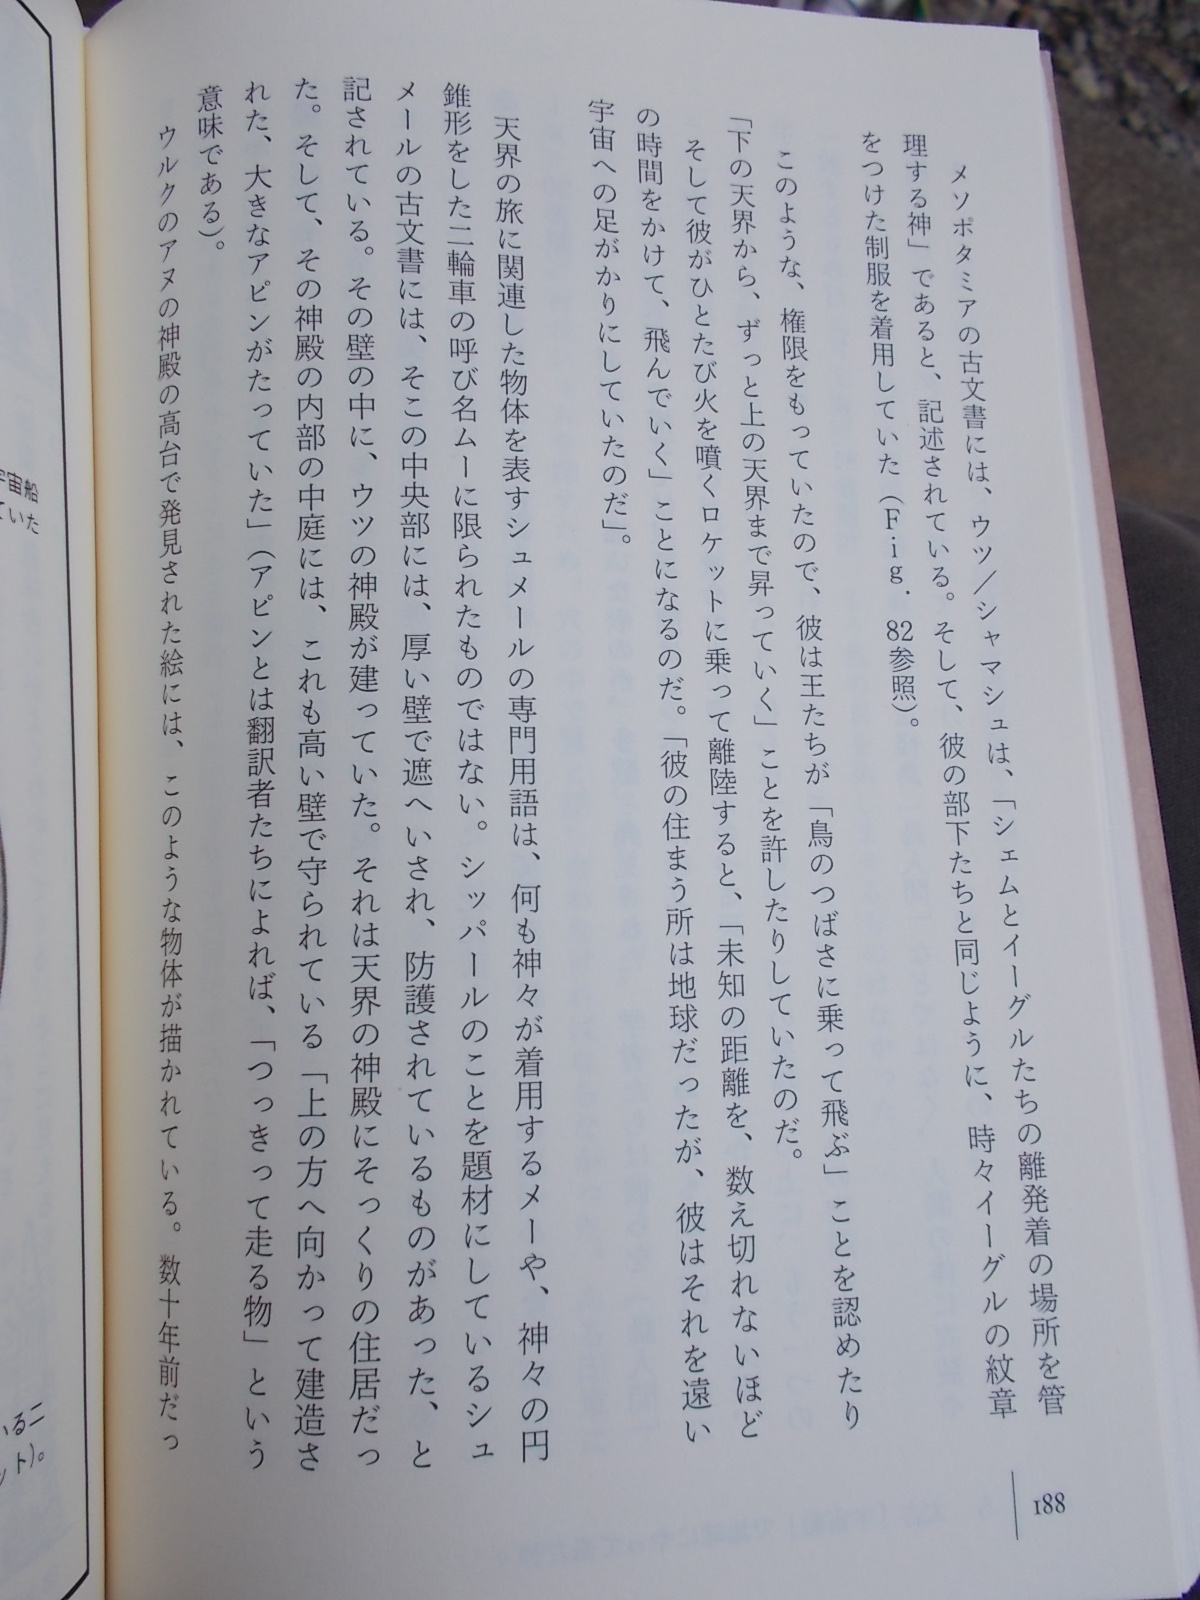 メソポタミアの古文書には、ウツ／シャマシュは、「シェムとイーグルたちの離発着の場所を管
理する神」であると、記述されている。そして、彼の部下たちと同じように、時々イーグルの紋章
をつけた制服を着用していた（Fig．82参照）。
このような、権限をもっていたので、彼は王たちが「鳥のつばさに乗って飛ぶ」ことを認めたり
「下の天界から、ずっと上の天界まで昇っていく」ことを許したりしていたのだ。
そして彼がひとたび火を噴くロケットに乗って離陸すると、「未知の距離を、数え切れないほど
の時間をかけて、飛んでいく」ことになるのだ。「彼の住まう所は地球だったが、彼はそれを遠い
宇宙への足がかりにしていたのだ」。
天界の旅に関連した物体を表すシュメールの専門用語は、何も神々が着用するメーや、神々の円
錐形をした二輪車の呼び名ムーに限られたものではない。シッパールのことを題材にしているシュ
メールの古文書には、そこの中央部には、厚い壁で遮へいされ、防護されているものがあった、と
記されている。その壁の中に、ウツの神殿が建っていた。それは天界の神殿にそっくりの住居だっ
た。そして、その神殿の内部の中庭には、これも高い壁で守られている「上の方へ向かって建造さ
れた、大きなアピンがたっていた」（アピンとは翻訳者たちによれば、「つっきって走る物」という
意味である）。
ウルクのアヌの神殿の高台で発見された絵には、このような物体が描かれている。数十年前だっ
188
宇宙船
ていた
いる二
ット）。